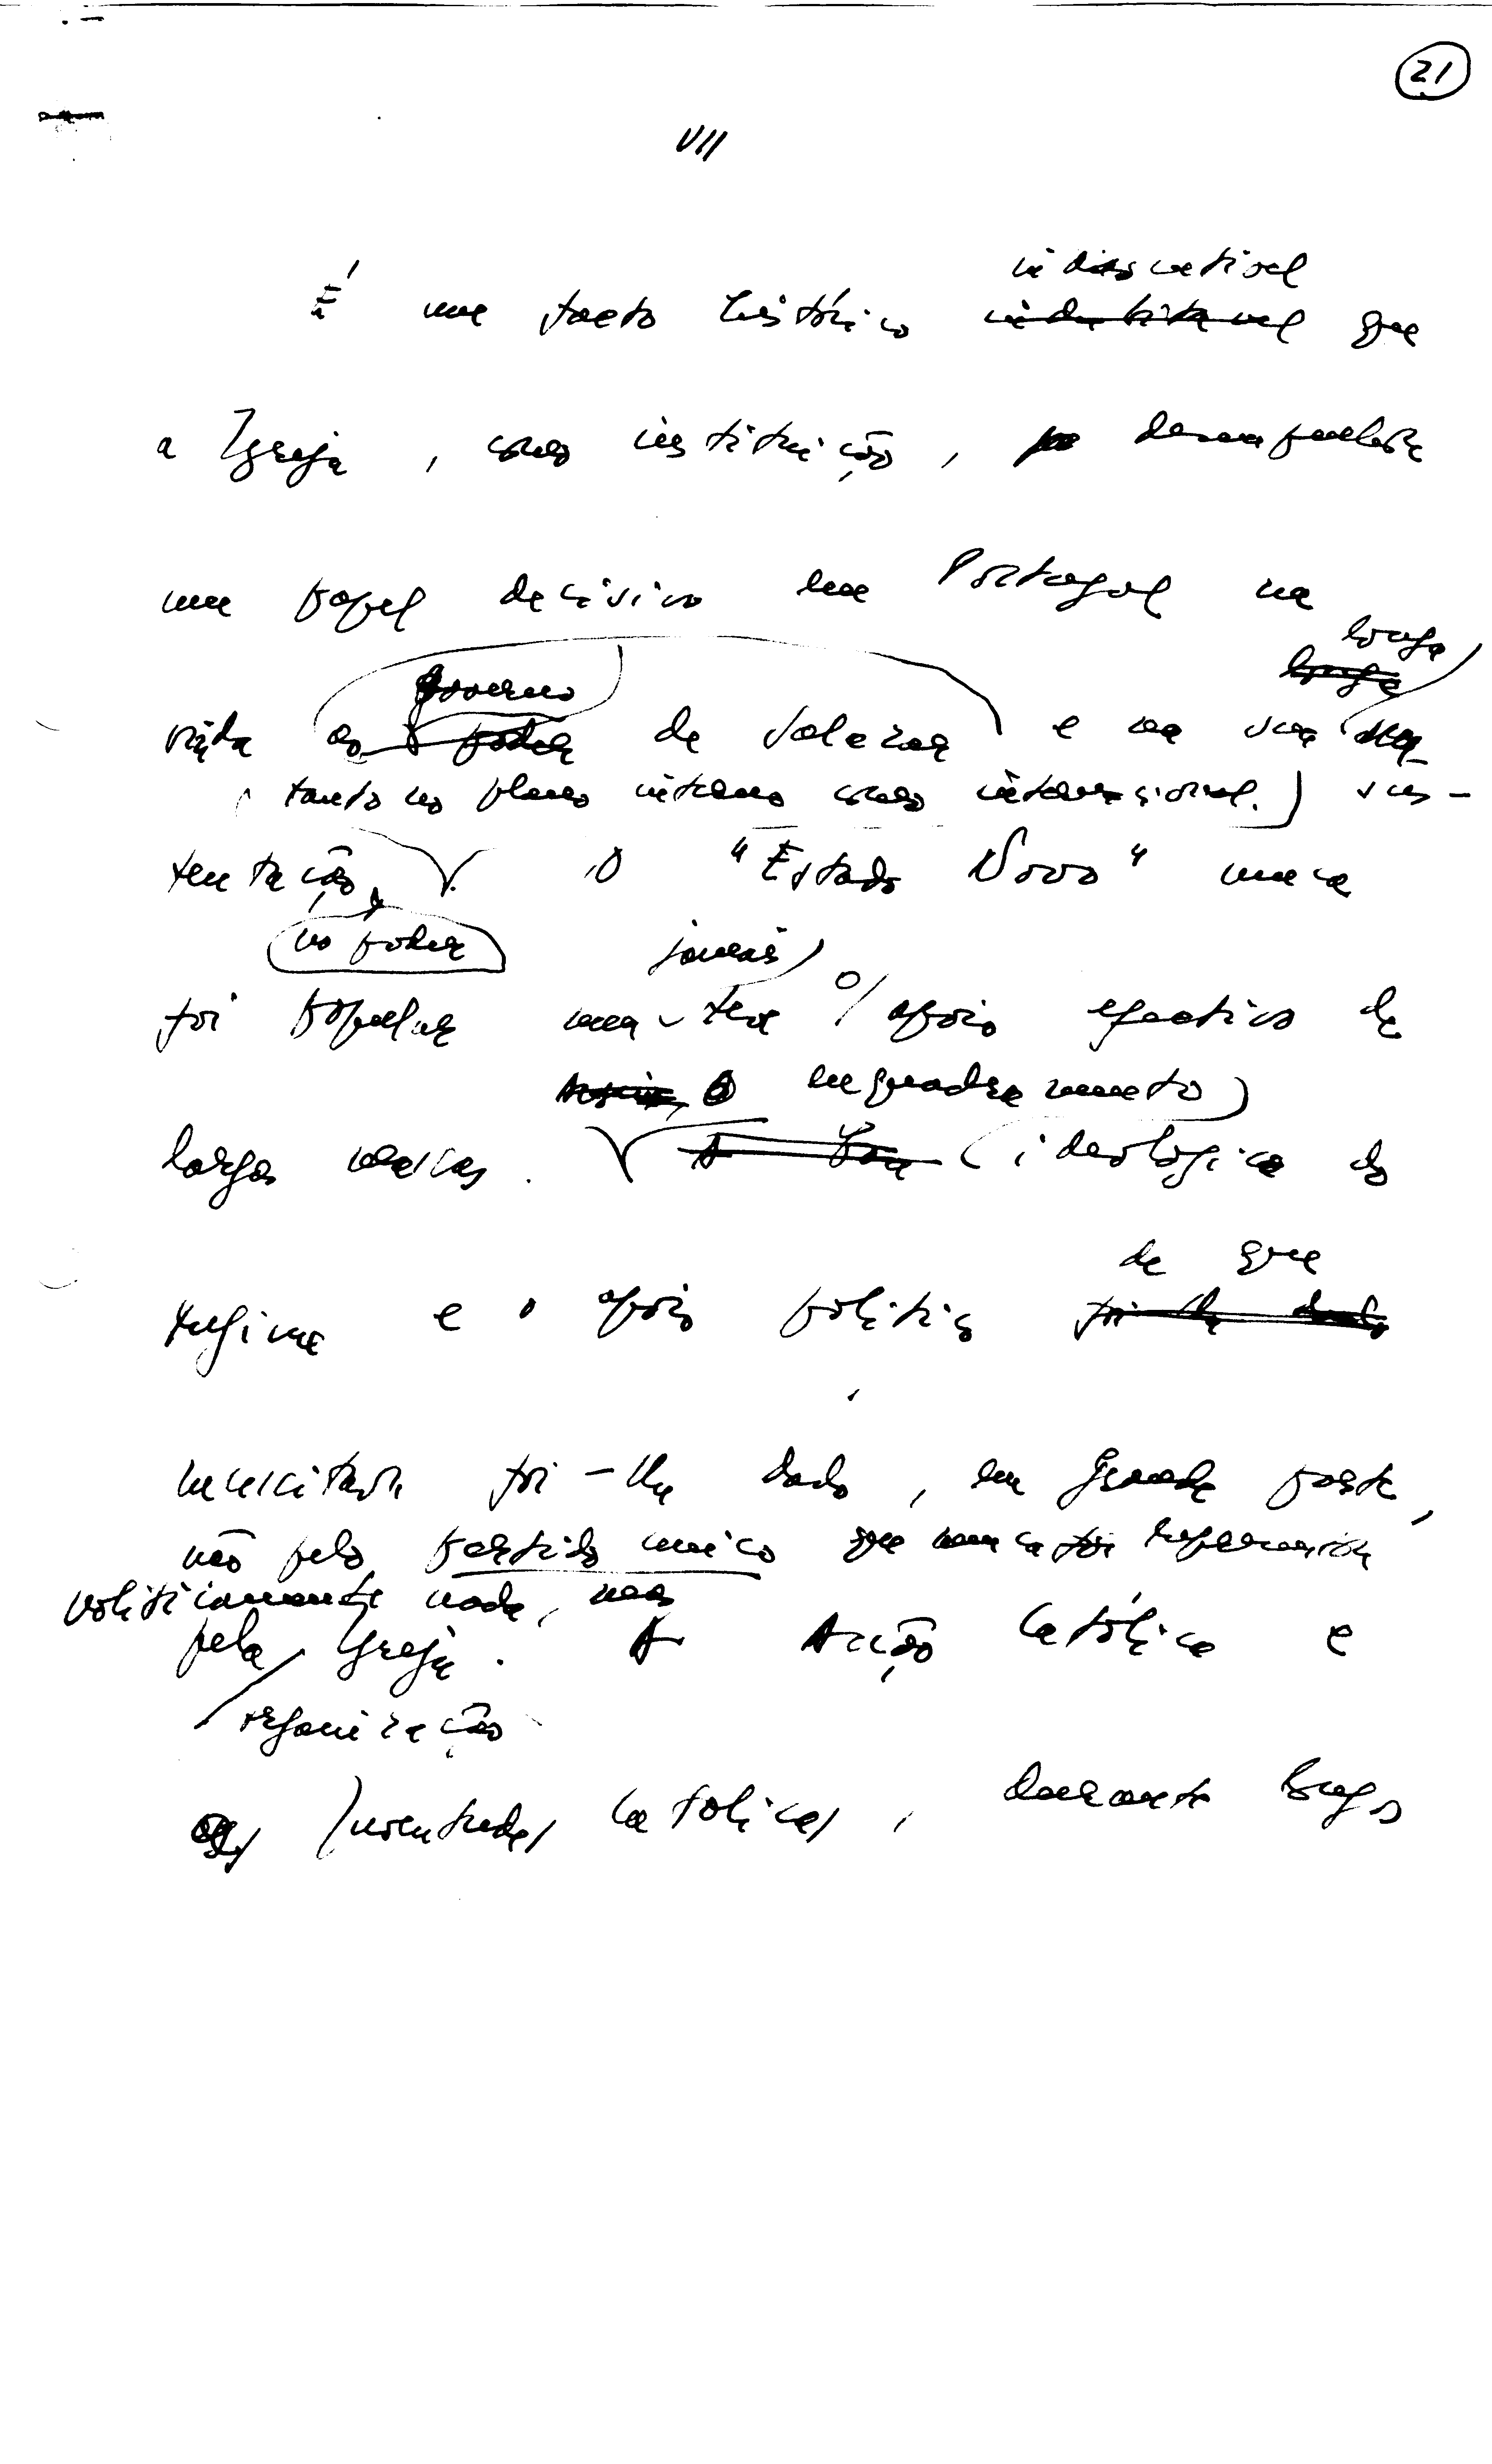 21
VII
indiscutível
É um facto histórico indubitável que
a Igreja, como instituição, desempenhou
um papel decisivo em Portugal na
longa
governo longa
vinda ao poder de Salazar e na sua
tanto no plano interno como internacional.) sus-
tentação. O "Estado Novo" nunca
no poder jamais
foi popular nem teve o apoio efectivo de
O enquadramento
largas massas. A ideológico do
de que
regime e o apoio político foi-lhe dado
necessitava foi-lhe dado, em grande parte,
não pelo partido único que nunca foi representou
politicamente nada, mas
pela Igreja. A Acção Católica e
organização
as Juventudes Católicas, durante longos